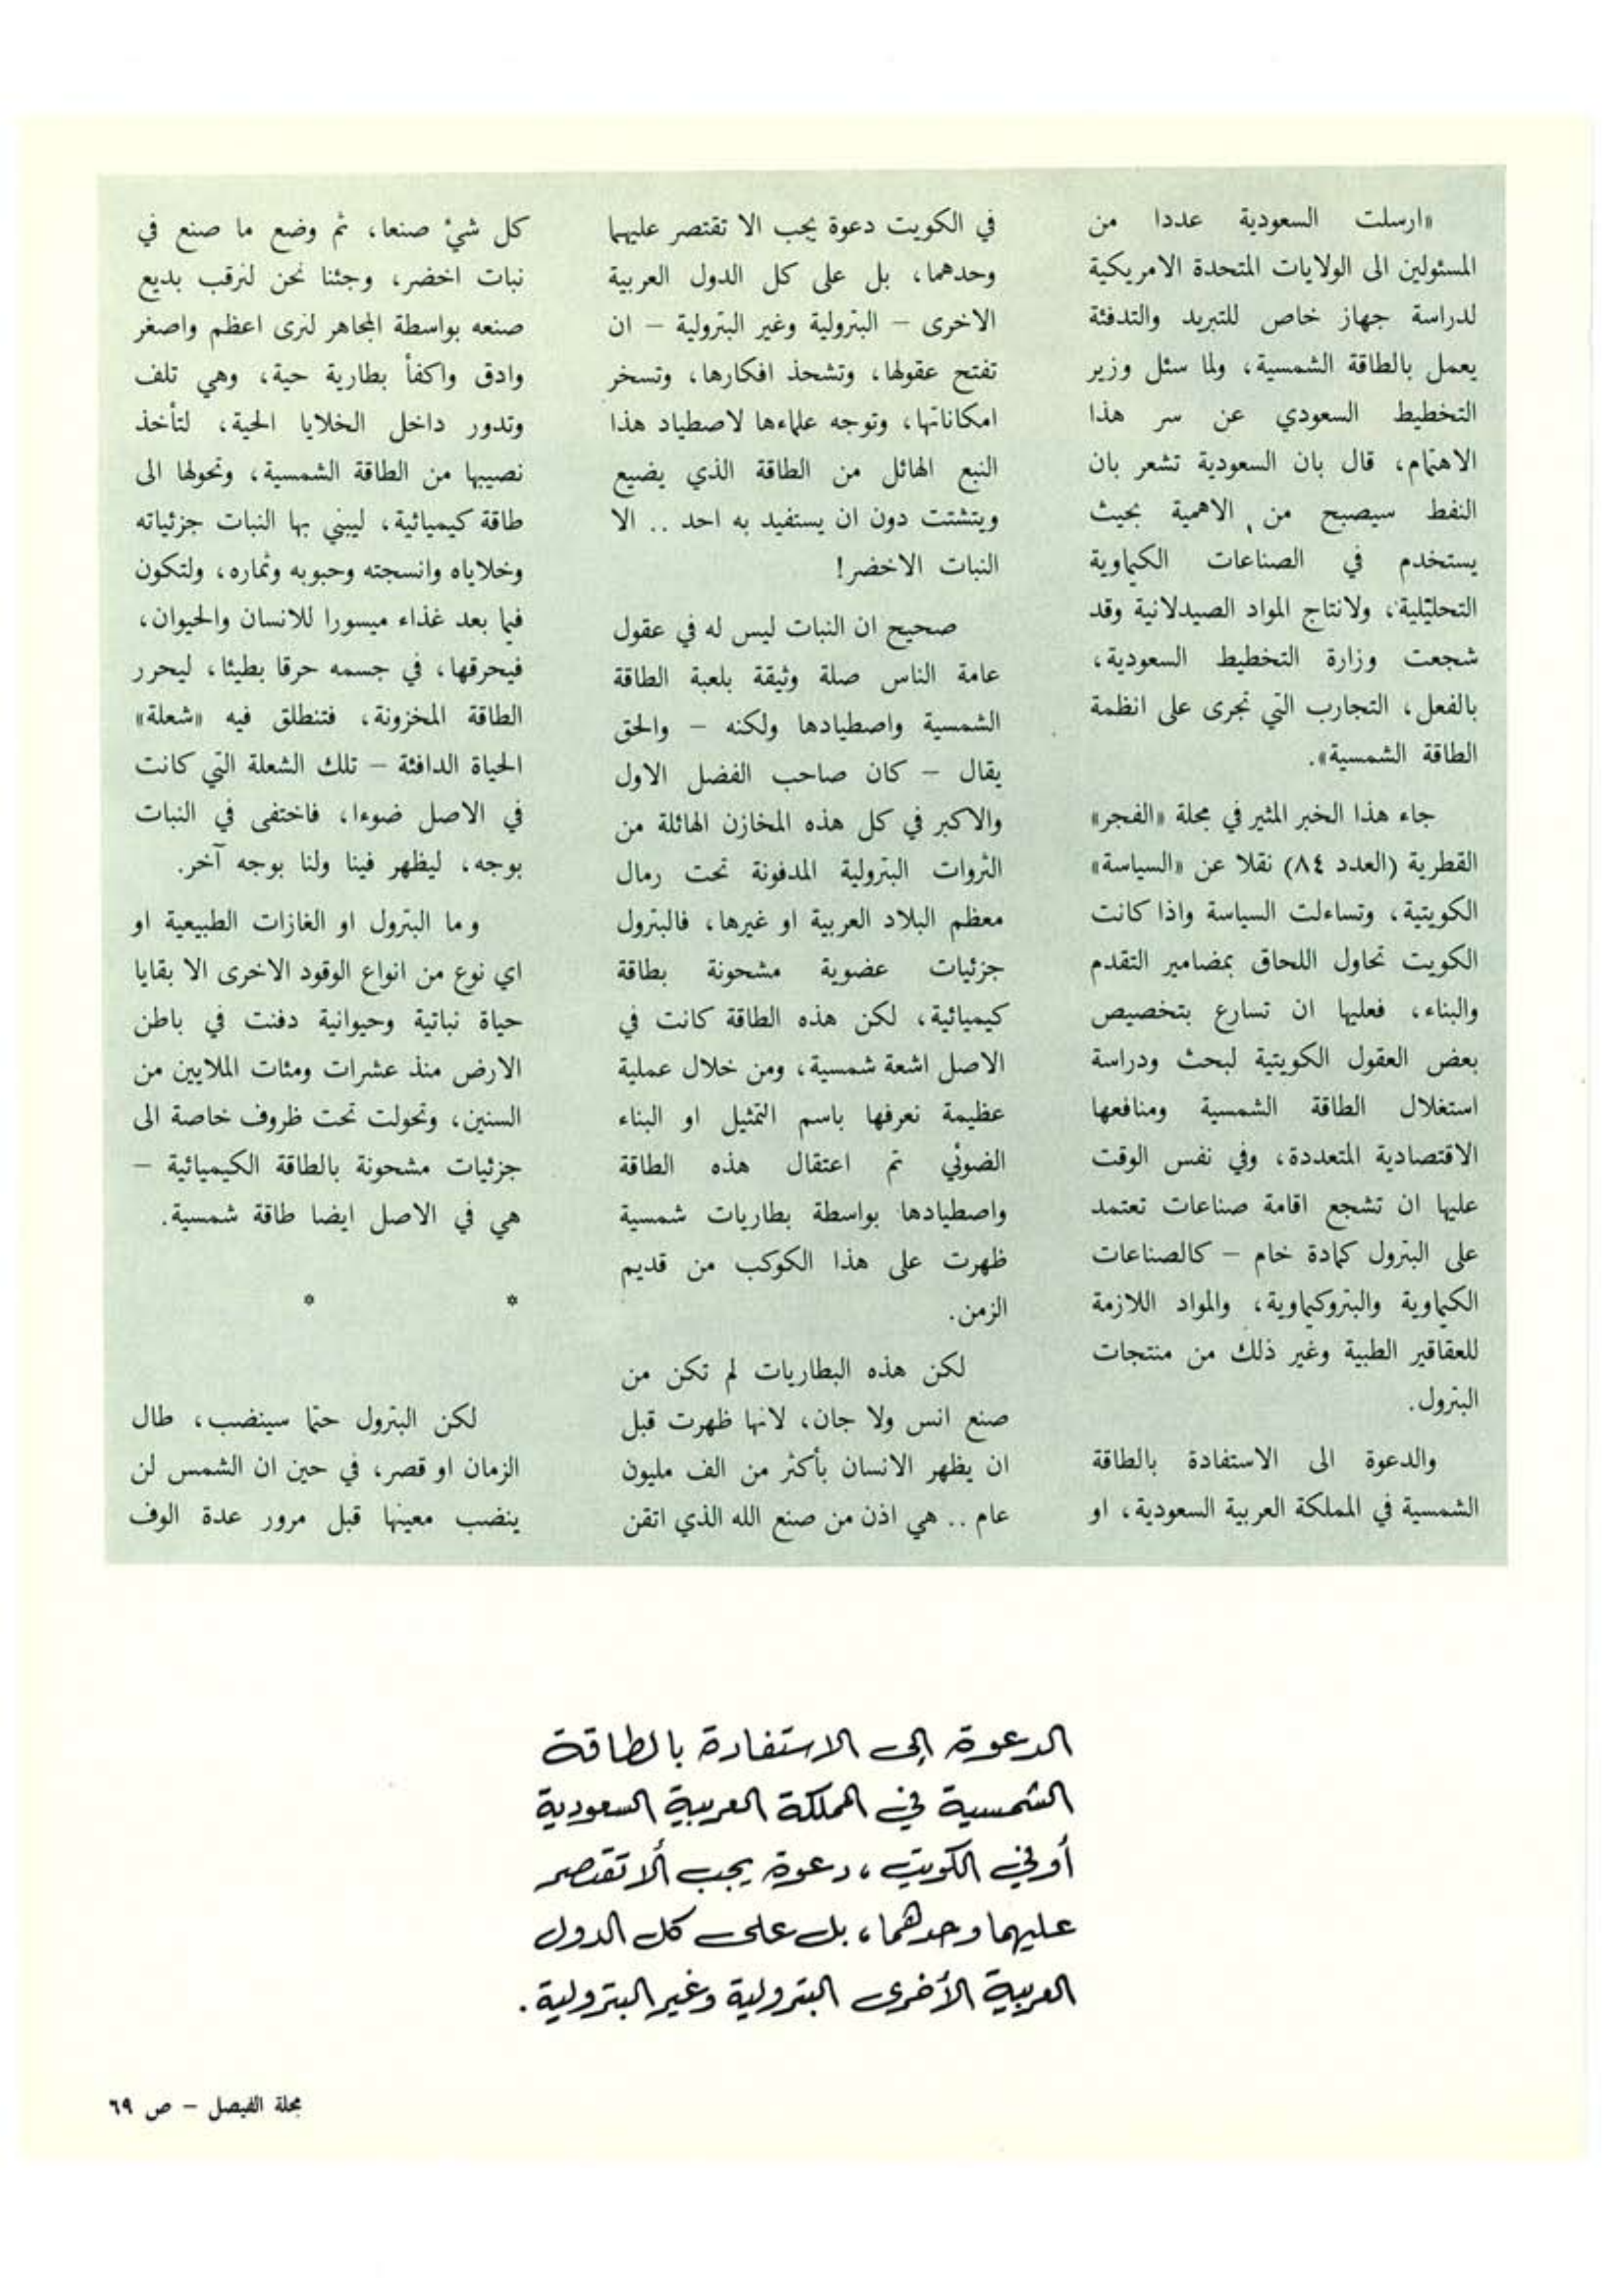 «ارسلت السعودية عددا من
المسئولين الى الولايات المتحدة الامريكية
لدراسة جهاز خاص للتبريد والتدفئة
يعمل بالطاقة الشمسية، ولما سئل وزير
التخطيط السعودي عن سر هذا
الاهتمام، قال بان السعودية تشعر بان
النفط سيصبح من الاهمية بحيث
يستخدم في الصناعات الكيماوية
التحليلية، ولانتاج المواد الصيدلانية وقد
شجعت وزارة التخطيط السعودية،
بالفعل، التجارب التي تجرى على انظمة
الطاقة الشمسية».
جاء هذا الخبر المثير في مجلة «الفجر»
القطرية (العدد ٨٤) نقلا عن «السياسة»
الكويتية، وتساءلت السياسة واذا كانت
الكويت تحاول اللحاق بمضامير التقدم
والبناء، فعليها ان تسارع بتخصيص
بعض العقول الكويتية لبحث ودراسة
استغلال الطاقة الشمسية ومنافعها
الاقتصادية المتعددة، وفي نفس الوقت
عليها ان تشجع اقامة صناعات تعتمد
على البترول كمادة خام – كالصناعات
الكيماوية والبتروكيماوية، والمواد اللازمة
للعقاقير الطبية وغير ذلك من منتجات
البترول.
والدعوة الى الاستفادة بالطاقة
الشمسية في المملكة العربية السعودية، او
في الكويت دعوة يجب الا تقتصر عليهما
وحدهما، بل على كل الدول العربية
الاخرى – البترولية وغير البترولية – ان
تفتح عقولها، وتشحذ افكارها، وتسخر
امكاناتها، وتوجه علماءها لاصطياد هذا
النبع الهائل من الطاقة الذي يضيع
ويتشتت دون ان يستفيد به احد .. الا
النبات الاخضر!
صحيح ان النبات ليس له في عقول
عامة الناس صلة وثيقة بلعبة الطاقة
الشمسية واصطيادها ولكنه – والحق
يقال – كان صاحب الفضل الاول
والاكبر في كل هذه المخازن الهائلة من
الثروات البترولية المدفونة تحت رمال
معظم البلاد العربية او غيرها، فالبترول
جزئيات عضوية مشحونة بطاقة
كيميائية، لكن هذه الطاقة كانت في
الاصل اشعة شمسية، ومن خلال عملية
عظيمة نعرفها باسم التمثيل او البناء
الضوئي تم اعتقال هذه الطاقة
واصطيادها بواسطة بطاريات شمسية
ظهرت على هذا الكوكب من قديم
الزمن.
لكن هذه البطاريات لم تكن من
صنع انس ولا جان، لانها ظهرت قبل
ان يظهر الانسان بأكثر من الف مليون
عام .. هي اذن من صنع الله الذي اتقن
كل شيء صنعا، ثم وضع ما صنع في
نبات اخضر، وجئنا نحن لنرقب بديع
صنعه بواسطة المجاهر لنرى اعظم واصغر
وادق واكفأ بطارية حية، وهي تلف
وتدور داخل الخلايا الحية، لتأخذ
نصيبها من الطاقة الشمسية، وتحولها الى
طاقة كيميائية، ليبني بها النبات جزئياته
وخلاياه وانسجته وحبوبه وثماره، ولتكون
فيما بعد غذاء ميسورا للانسان والحيوان،
فيحرقها، في جسمه حرقا بطيئا، ليحرر
الطاقة المخزونة، فتنطلق فيه «شعلة»
الحياة الدافئة – تلك الشعلة التي كانت
في الاصل ضوءا، فاختفى في النبات
بوجه، ليظهر فينا ولنا بوجه آخر.
وما البترول او الغازات الطبيعية او
اي نوع من انواع الوقود الاخرى الا بقايا
حياة نباتية وحيوانية دفنت في باطن
الارض منذ عشرات ومئات الملايين من
السنين، وتحولت تحت ظروف خاصة الى
جزئيات مشحونة بالطاقة الكيميائية –
هي في الاصل ايضا طاقة شمسية.
* *
لكن البترول حتما سينضب، طال
الزمان او قصر، في حين ان الشمس لن
ينضب معينها قبل مرور عدة الوف
الدعوة إلى الاستفادة بالطاقة
الشمسية في المملكة العربية السعودية
أو في الكويت، دعوة يجب ألا تقتصر
عليهما وحدهما، بل على كل الدول
العربية الأخرى البترولية وغير البترولية.
مجلة الفيصل – ص ٦٩